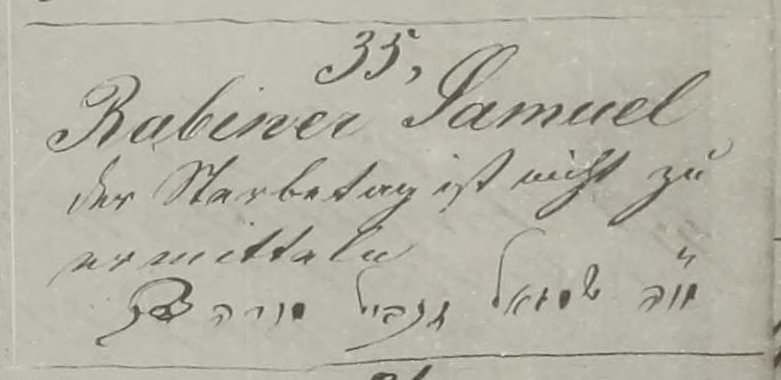 35,
Rabiner Samuel
der Sterbetag ist nicht zu
ermitteln
שמואל